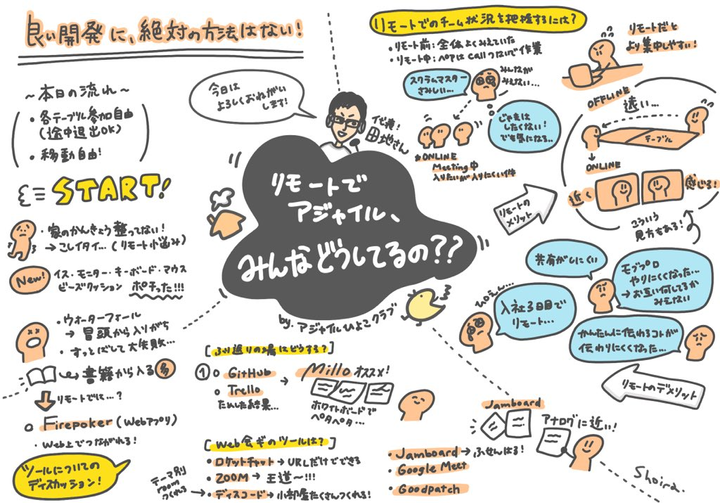 良い開発に、絶対の方法はない!
〜本日の流れ〜
・各テーブル参加自由
(途中退出OK)
・移動自由!
START!
・家のかんきょう整ってない!
→こしイタイ…(リモート小悩み)
New!
イス・モニター・キーボード・マウス
ビーズクッション ポチった!!!
・ウォーターフォール
→冒頭から入りがち
・ずっとだして大失敗…
→書籍から入る多
リモートでは…?
○Firepoker(Webアプリ)
・Web上でつながれる!
ツールについての
ディスカッション!
今日は
よろしくおねがい
します!
田地さん
リモートで
アジャイル、
みんなどうしてるの??
by.アジャイルひよこクラブ
[ふり返りの場にどうする?]
①○GitHub
○Trello
ためした結果…
→Miroオススメ!
ホワイトボードで
ペタペタ…
[Web会議のツールは?]
・ロケットチャット→URLだけでできる
・ZOOM→王道〜!!!
・ディスコード→小部屋たくさんつくれる!
テーマ別
room
つくれる
リモートでのチーム状況を把握するには?
・リモート前:全体よくみえていた
・リモート中:ペアはcallつないで作業
スクラムマスター
さみしい…
みんなが
みえない…
じゃまは
したくない!
でも気になる…
*ONLINE
Meeting中
入りたいが入りにくい件
リモートだと
より集中しやすい!
OFFLINE
遠い…
テーブル
ONLINE
近く
感じる!
こういう
見方もある!
リモートの
メリット
共有がしにくい
モブプロ
やりにくくなった…
→お互い何してるか
みえない
ぴえん…
入社3日目で
リモート…
かんたんに伝わるコトが
伝わりにくくなった…
リモートのデメリット
Jamboard
アナログに近い!
・Jamboard→ふせんはる!
・Google Meet
・Goodpatch
Shoira.